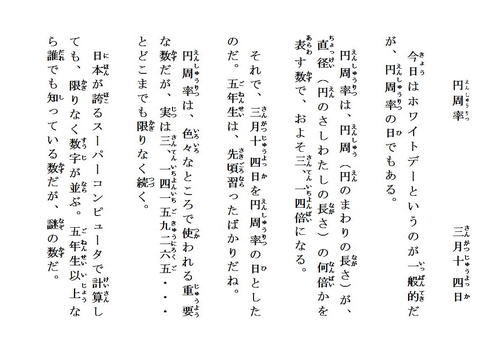 円周率　三月十四日
今日はホワイトデーというのが一般的だ
が、円周率の日でもある。
円周率は、円周（円のまわりの長さ）が、
直径（円のさしわたしの長さ）の何倍かを
表す数で、およそ三、一四倍になる。
それで、三月十四日を円周率の日とした
のだ。五年生は、先頃習ったばかりだね。
円周率は、色々なところで使われる重要
な数だが、実は三、一四一五九二六五・・・
とどこまでも限りなく続く。
日本が誇るスーパーコンピュータで計算し
ても、限りなく数字が並ぶ。五年生以上な
ら誰でも知っている数だが、謎の数だ。